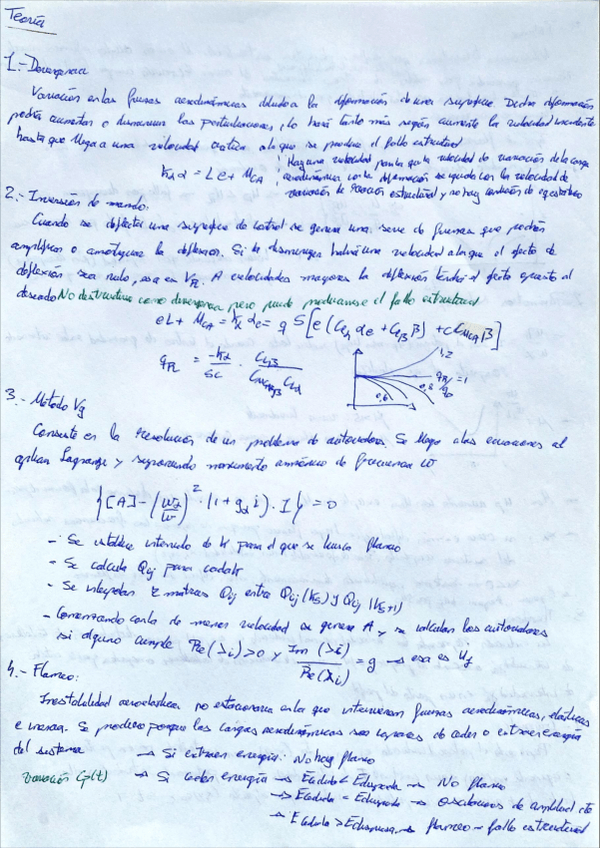 Teoría
1.- Divergencia
Variación en las fuerzas aerodinámicas debido a la deformación de una superficie. Dicha deformación
podría aumentar o disminuir las perturbaciones, lo hará tanto más según aumente la velocidad incidente
hasta que llega a una velocidad crítica a la que se produce el fallo estructural
Kα α = Le + MCA ; Hay una velocidad para la que la velocidad de variación de la carga
aerodinámica con la deformación se iguala con la velocidad de
variación de reacción estructural y no hay condición de equilibrio
2.- Inversión de mando:
Cuando se deflecta una superficie de control se genera una serie de fuerzas que podrían
amplificar o amortiguar la deflexión. Si la disminuyen habrá una velocidad a la que el efecto de
deflexión sea nulo, esa es VR. A velocidades mayores la deflexión tendrá el efecto opuesto al
deseado No destructivo como divergencia pero puede producirse el fallo estructural
eL + MCA = Kα αe = q S [e (CLα αe + CLβ β) + c CMCAβ β]
qR = -Kα / SC · CLβ / CMCAβ CLα
1,2
qR/qD = 1
0,8
0,6
3.- Método Vg
Consiste en la resolución de un problema de autovalores. Se llega a las ecuaciones al
aplicar Lagrange y suponiendo movimiento armónico de frecuencia ω
{[A] - (ωα/ω)² · (1 + gα i) · I} = 0
- Se establece intervalo de k para el que se busca flameo
- Se calcula Qij para cada k
- Se interpolan 2 matrices Qij entre Qij (ks) y Qij (ks+1)
- Comenzando con la de menor velocidad se genera A y se calculan los autovalores
si alguno cumple Re(λi) > 0 y Im(λi)/Re(λi) = g → esa es Uf
4.- Flameo:
Inestabilidad aeroelástica no estacionaria en la que intervienen fuerzas aerodinámicas, elásticas
e inercia. Se produce porque las cargas aerodinámicas son capaces de ceder o extraer energía
del sistema → Si extraen energía: No hay flameo
variación Cp(t) → Si ceden energía → Ecedida < Edisipada → No flameo
→ Ecedida = Edisipada → oscilaciones de amplitud cte
→ Ecedida > Edisipada → flameo → fallo estructural